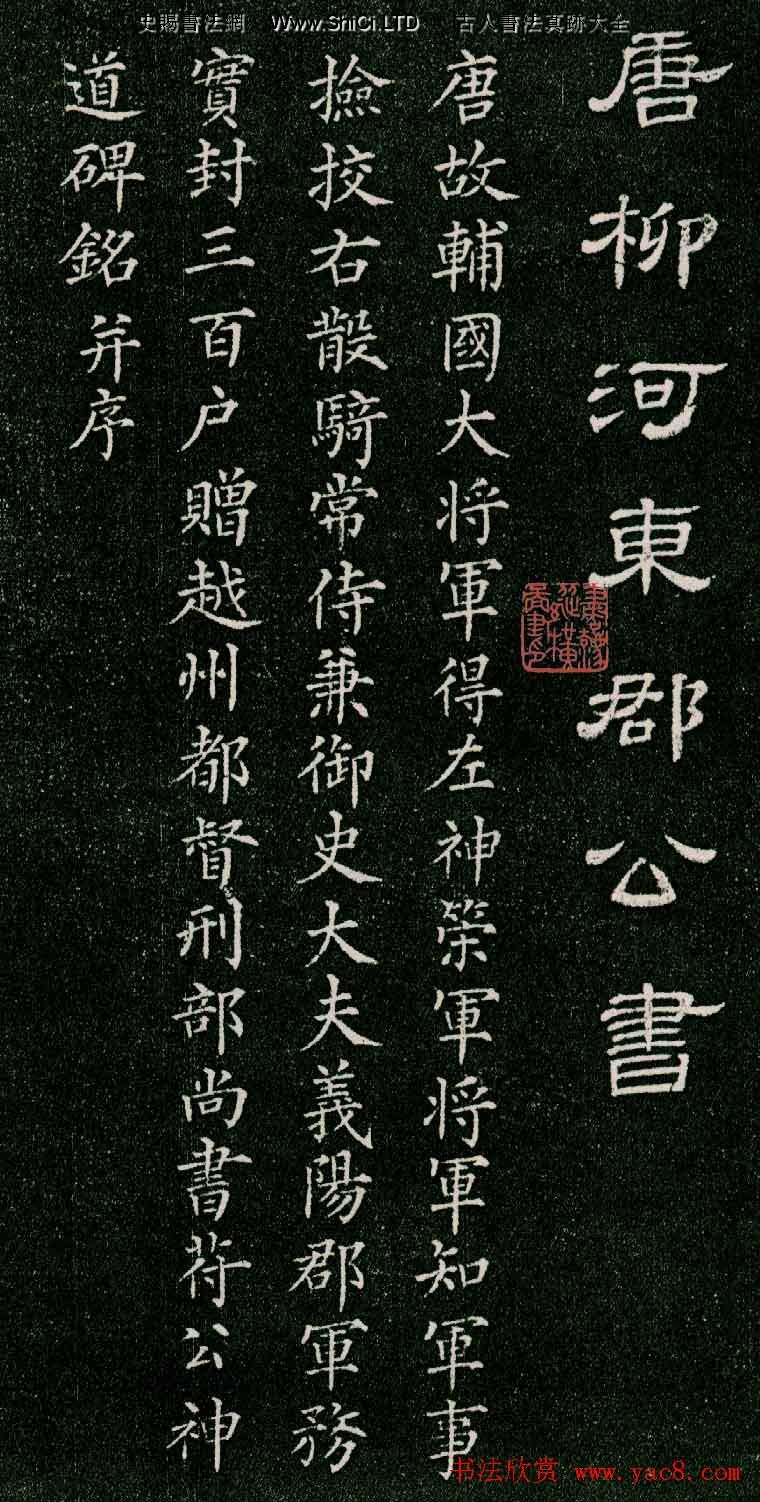 史賜書法網 Www.ShiCi.LTD 古人書法真跡大全
唐柳河東郡公書
唐故輔國大将軍得左神策軍将軍知軍事
撿挍右散騎常侍兼御史大夫義陽郡軍務
實封三百户贈越州都督刑部尚書苻公神
道碑銘并序
书法欣赏 www.yac8.com